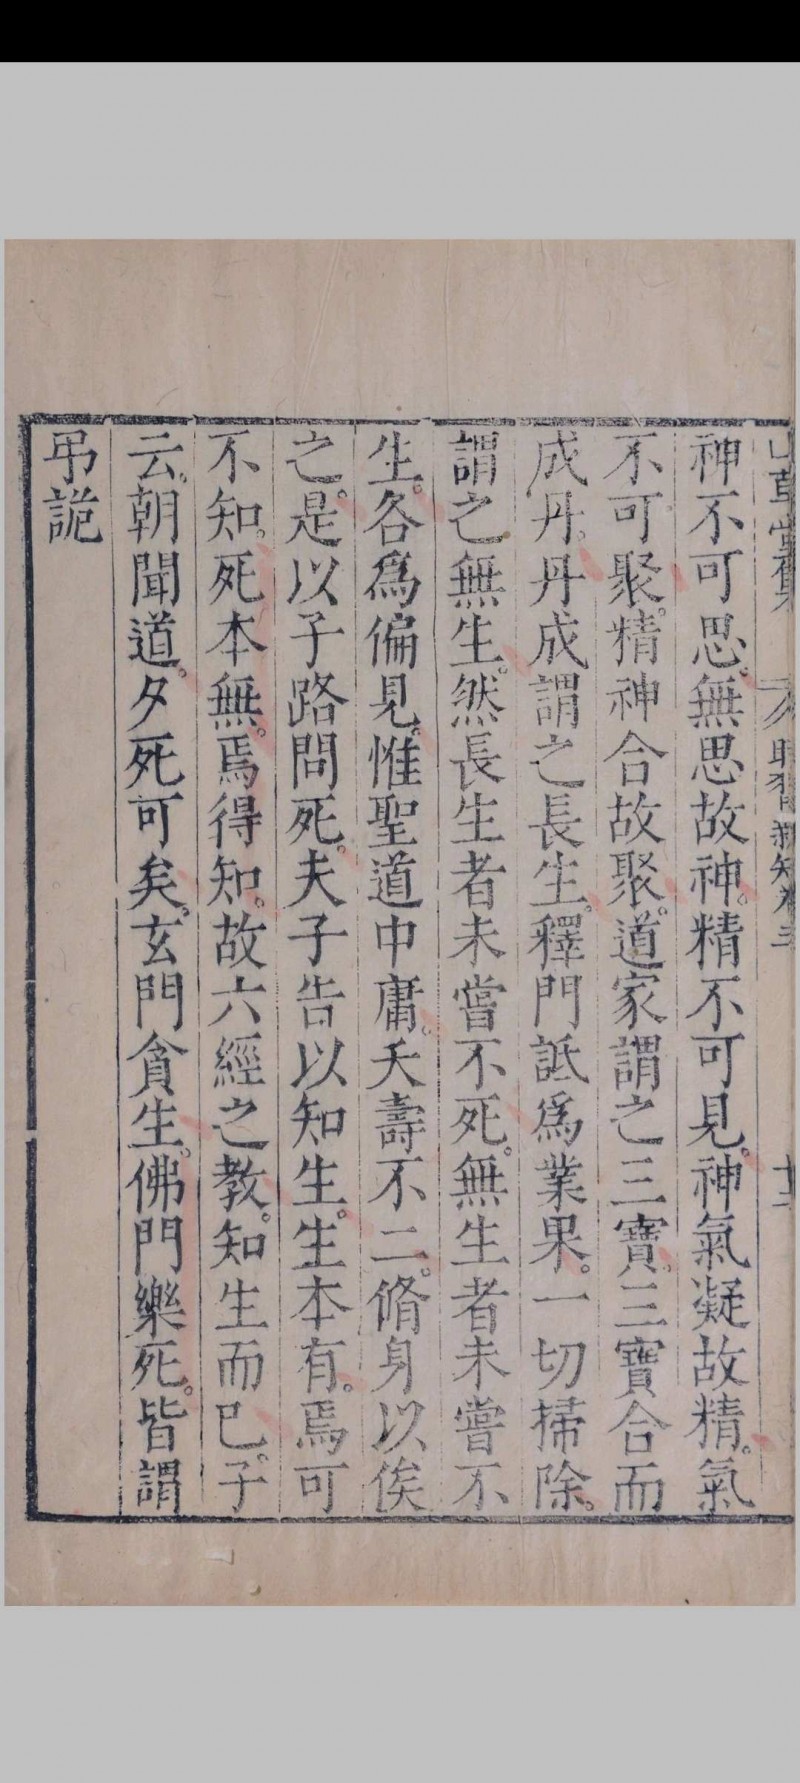 山草堂集
神不可思。無思故神。精不可見。神氣凝故精。氣
不可聚。精神合故聚。道家謂之三寶。三寶合而
成丹。丹成謂之長生。釋門詆爲業果。一切掃除。
謂之無生。然長生者未嘗不死。無生者未嘗不
生。各爲偏見。惟聖道中庸。夭壽不二。脩身以俟
之。是以子路問死。夫子告以知生。生本有。焉可
不知。死本無。焉得知。故六經之教。知生而已。子
云。朝聞道。夕死可矣。玄門貪生。佛門樂死。皆謂
弔詭